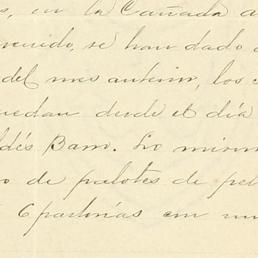 s, en la Cañada a
venido, se han dado
del mes anterior, los
quedan desde el día
ldés Barro. Lo mism
o de palotes de pel
6 partorías em mu